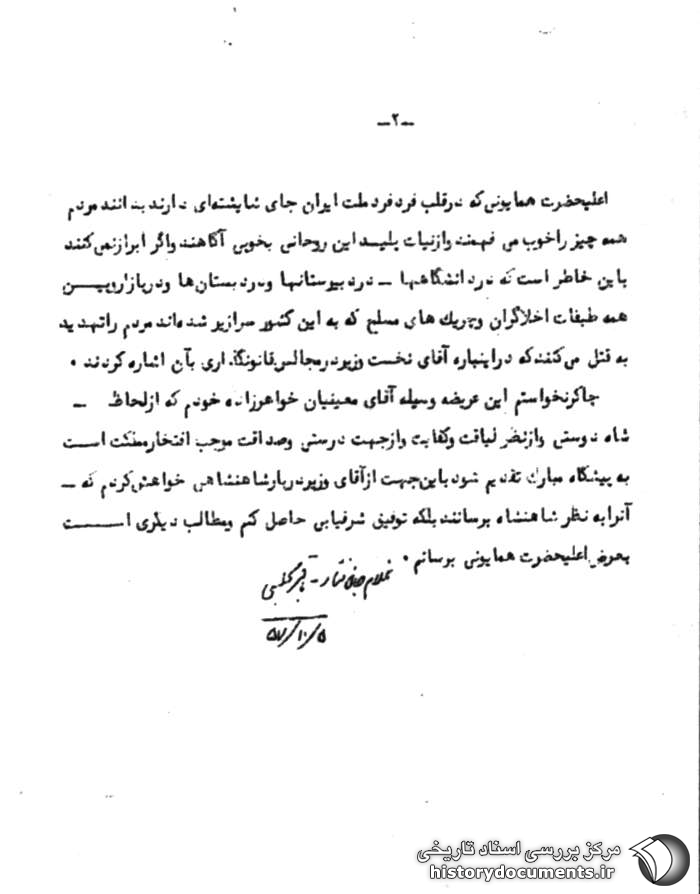 ـ۲ـ
اعلیحضرت همایونی که در قلب فرد فرد ملت ایران جای شایسته‌ای دارند بدانند مردم
همه چیز را خوب می فهمند و از نیات پلید این روحانی بخوبی آگاهند و اگر ابراز نمی‌کنند
باین خاطر است که در دانشگاهها ـ در دبیرستانها و در دبستان‌ها و در بازار و بین
همه طبقات اخلالگران و چریک های مسلح که به این کشور سرازیر شده‌اند مردم را تهدید
به قتل می‌کنند که در اینباره آقای نخست وزیر در مجالس قانونگذاری بآن اشاره کردند .
چاکر نخواستم این عریضه وسیله آقای معینیان خواهرزاده خودم که از لحاظ ـ
شاه دوستی و از نظر لیاقت و کفایت و از جهت درستی و صداقت موجب افتخار مملکت است
به پیشگاه مبارک تقدیم شود باین جهت از آقای وزیر دربار شاهنشاهی خواهش کردم که ـ
آنرا به نظر شاهنشاه برسانند بلکه توفیق شرفیابی حاصل کنم و مطالب دیگری است
بعرض اعلیحضرت همایونی برسانم .
غلام جان نثار ـ
۵۷/۱۰/۵
مرکز بررسی اسناد تاریخی
historydocuments.ir